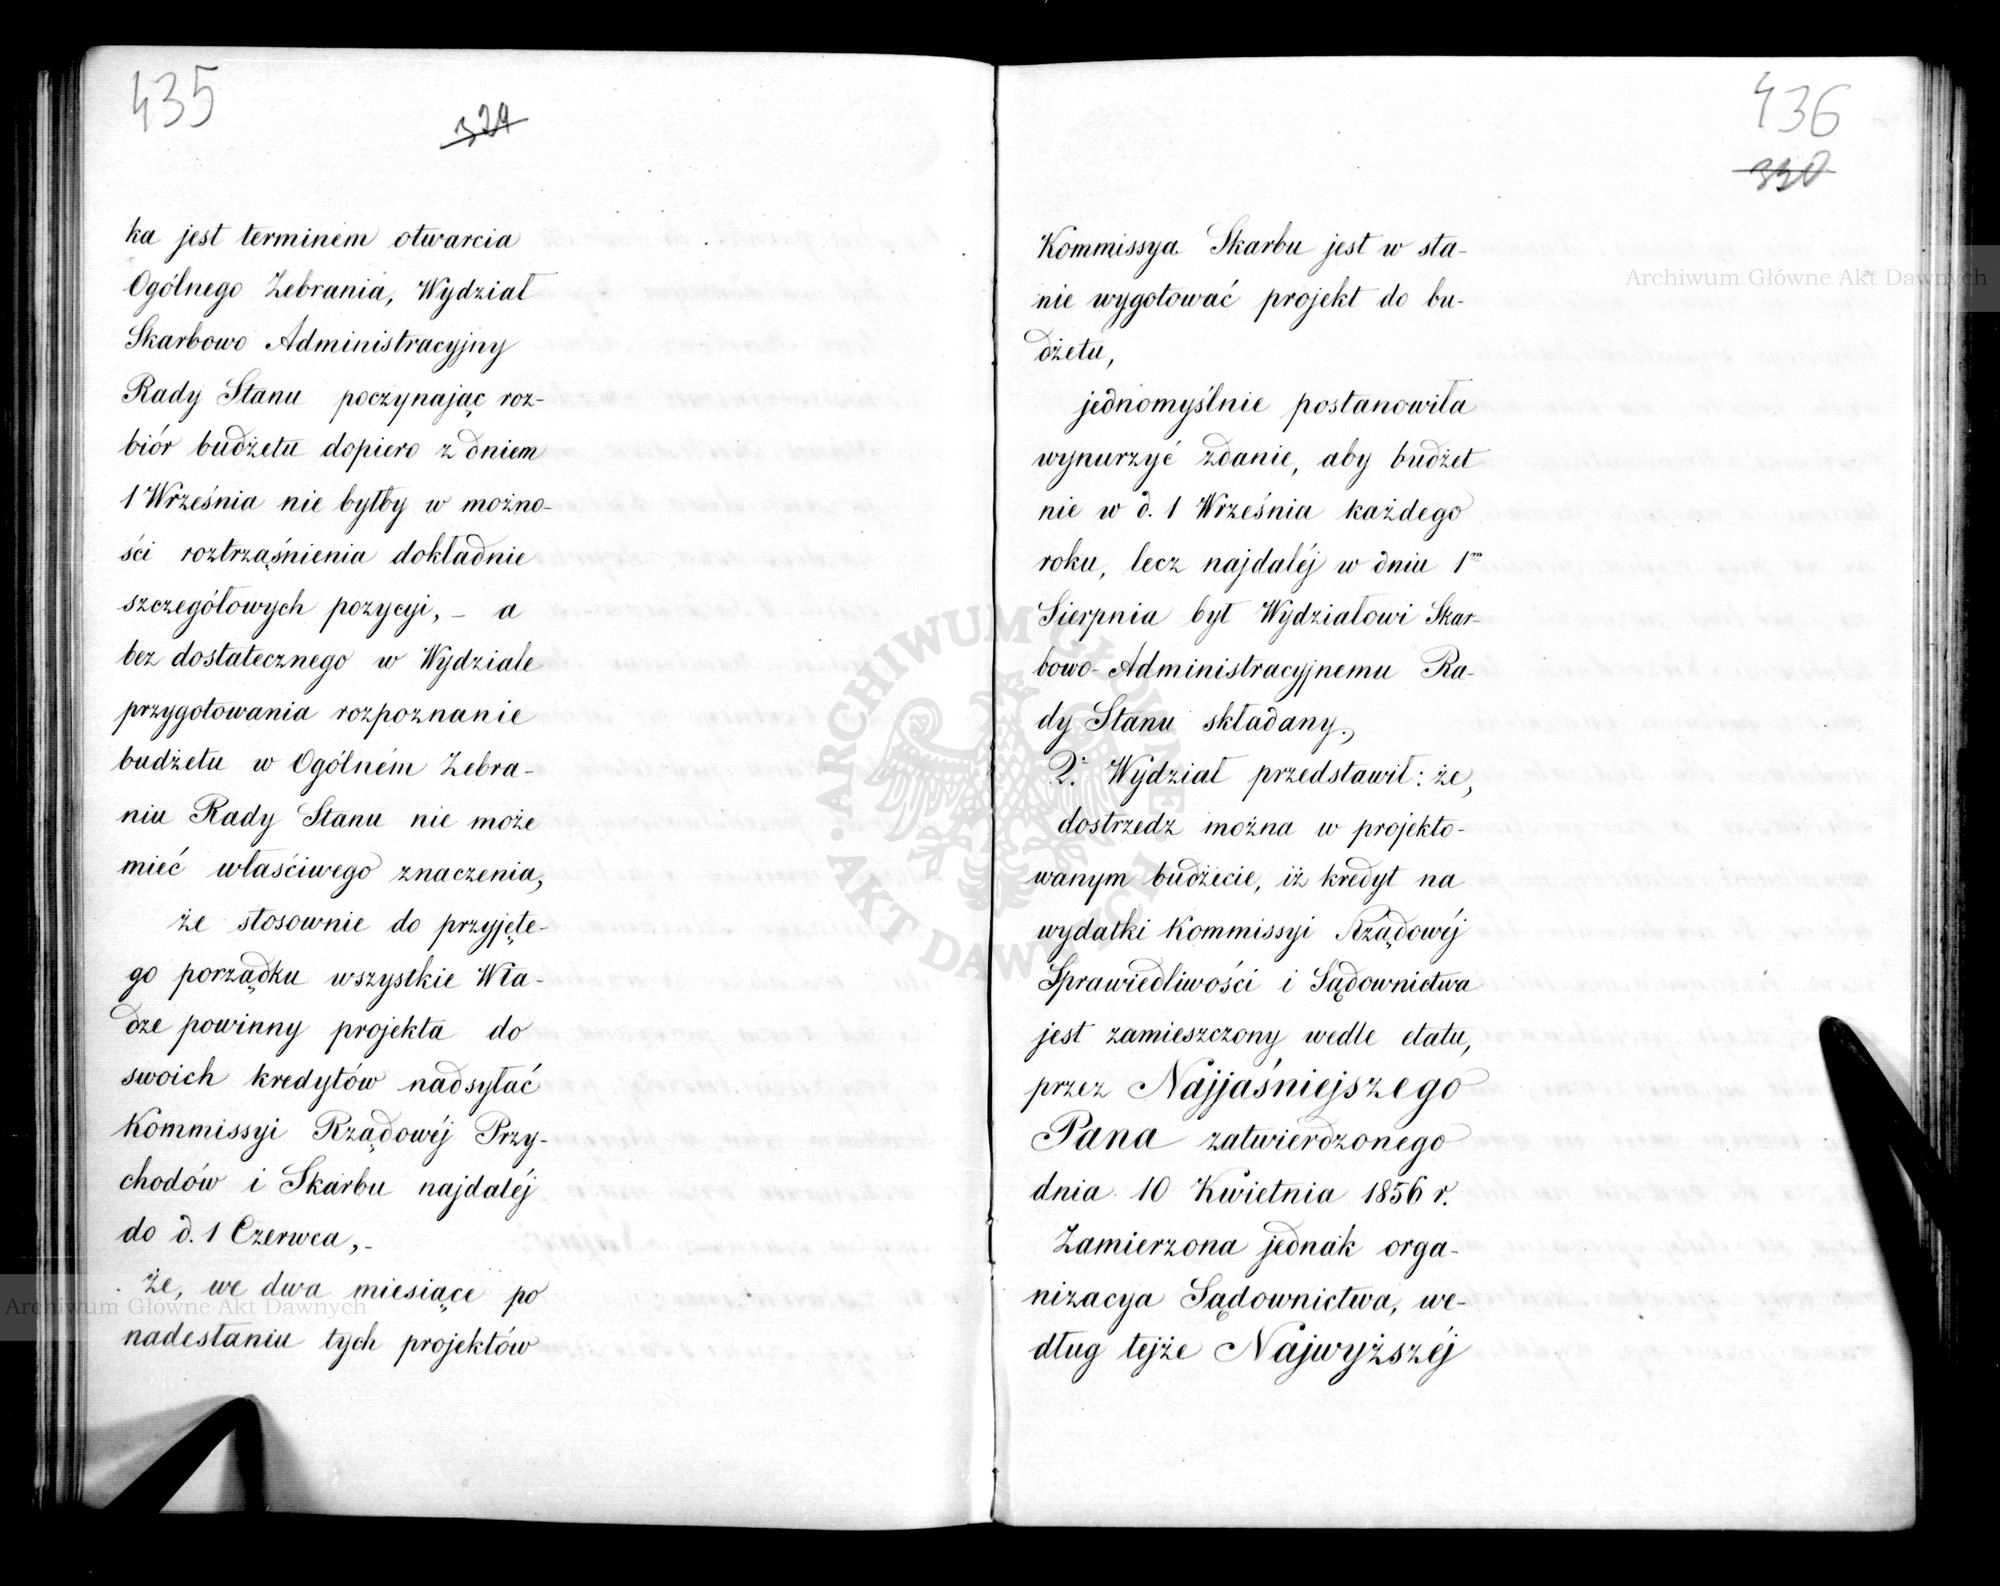 435
329
ka jest terminem otwarcia
Ogólnego Zebrania, Wydział
Skarbowo Administracyjny
Rady Stanu poczynając roz-
biór budżetu dopiero z dniem
1 Września nie byłby w możno-
ści roztrząśnienia dokładnie
szczegółowych pozycyi, – a
bez dostatecznego w Wydziale
przygotowania rozpoznanie
budżetu w Ogólném Zebra-
niu Rady Stanu nie może
mieć właściwego znaczenia,
że stosownie do przyjęte-
go porządku wszystkie Wła-
dze powinny projekta do
swoich kredytów nadsyłać
Kommissyi Rządowéj Przy-
chodów i Skarbu najdaléj
do d. 1 Czerwca, –
że, we dwa miesiące po
nadesłaniu tych projektów
436
330
Kommissya Skarbu jest w sta-
nie wygotować projekt do bu-
dżetu,
jednomyślnie postanowiła
wynurzyć zdanie, aby budżet
nie w d. 1 Września każdego
roku, lecz najdaléj w dniu 1m
Sierpnia był Wydziałowi Skar-
bowo-Administracyjnemu Ra-
dy Stanu składany.,
2. Wydział przedstawił: że,
dostrzedz można w projekto-
wanym budżecie, iż kredyt na
wydatki Kommissyi Rządowéj
Sprawiedliwości i Sądownictwa
jest zamieszczony wedle etatu,
przez Najjaśniejszego
Pana zatwierdzonego
dnia 10 Kwietnia 1856 r.
Zamierzona jednak orga-
nizacya Sądownictwa, we-
dług tejże Najwyższéj
Archiwum Główne Akt Dawnych
Archiwum Główne Akt Dawnych
ARCHIWUM GŁÓWNE AKT DAWNYCH